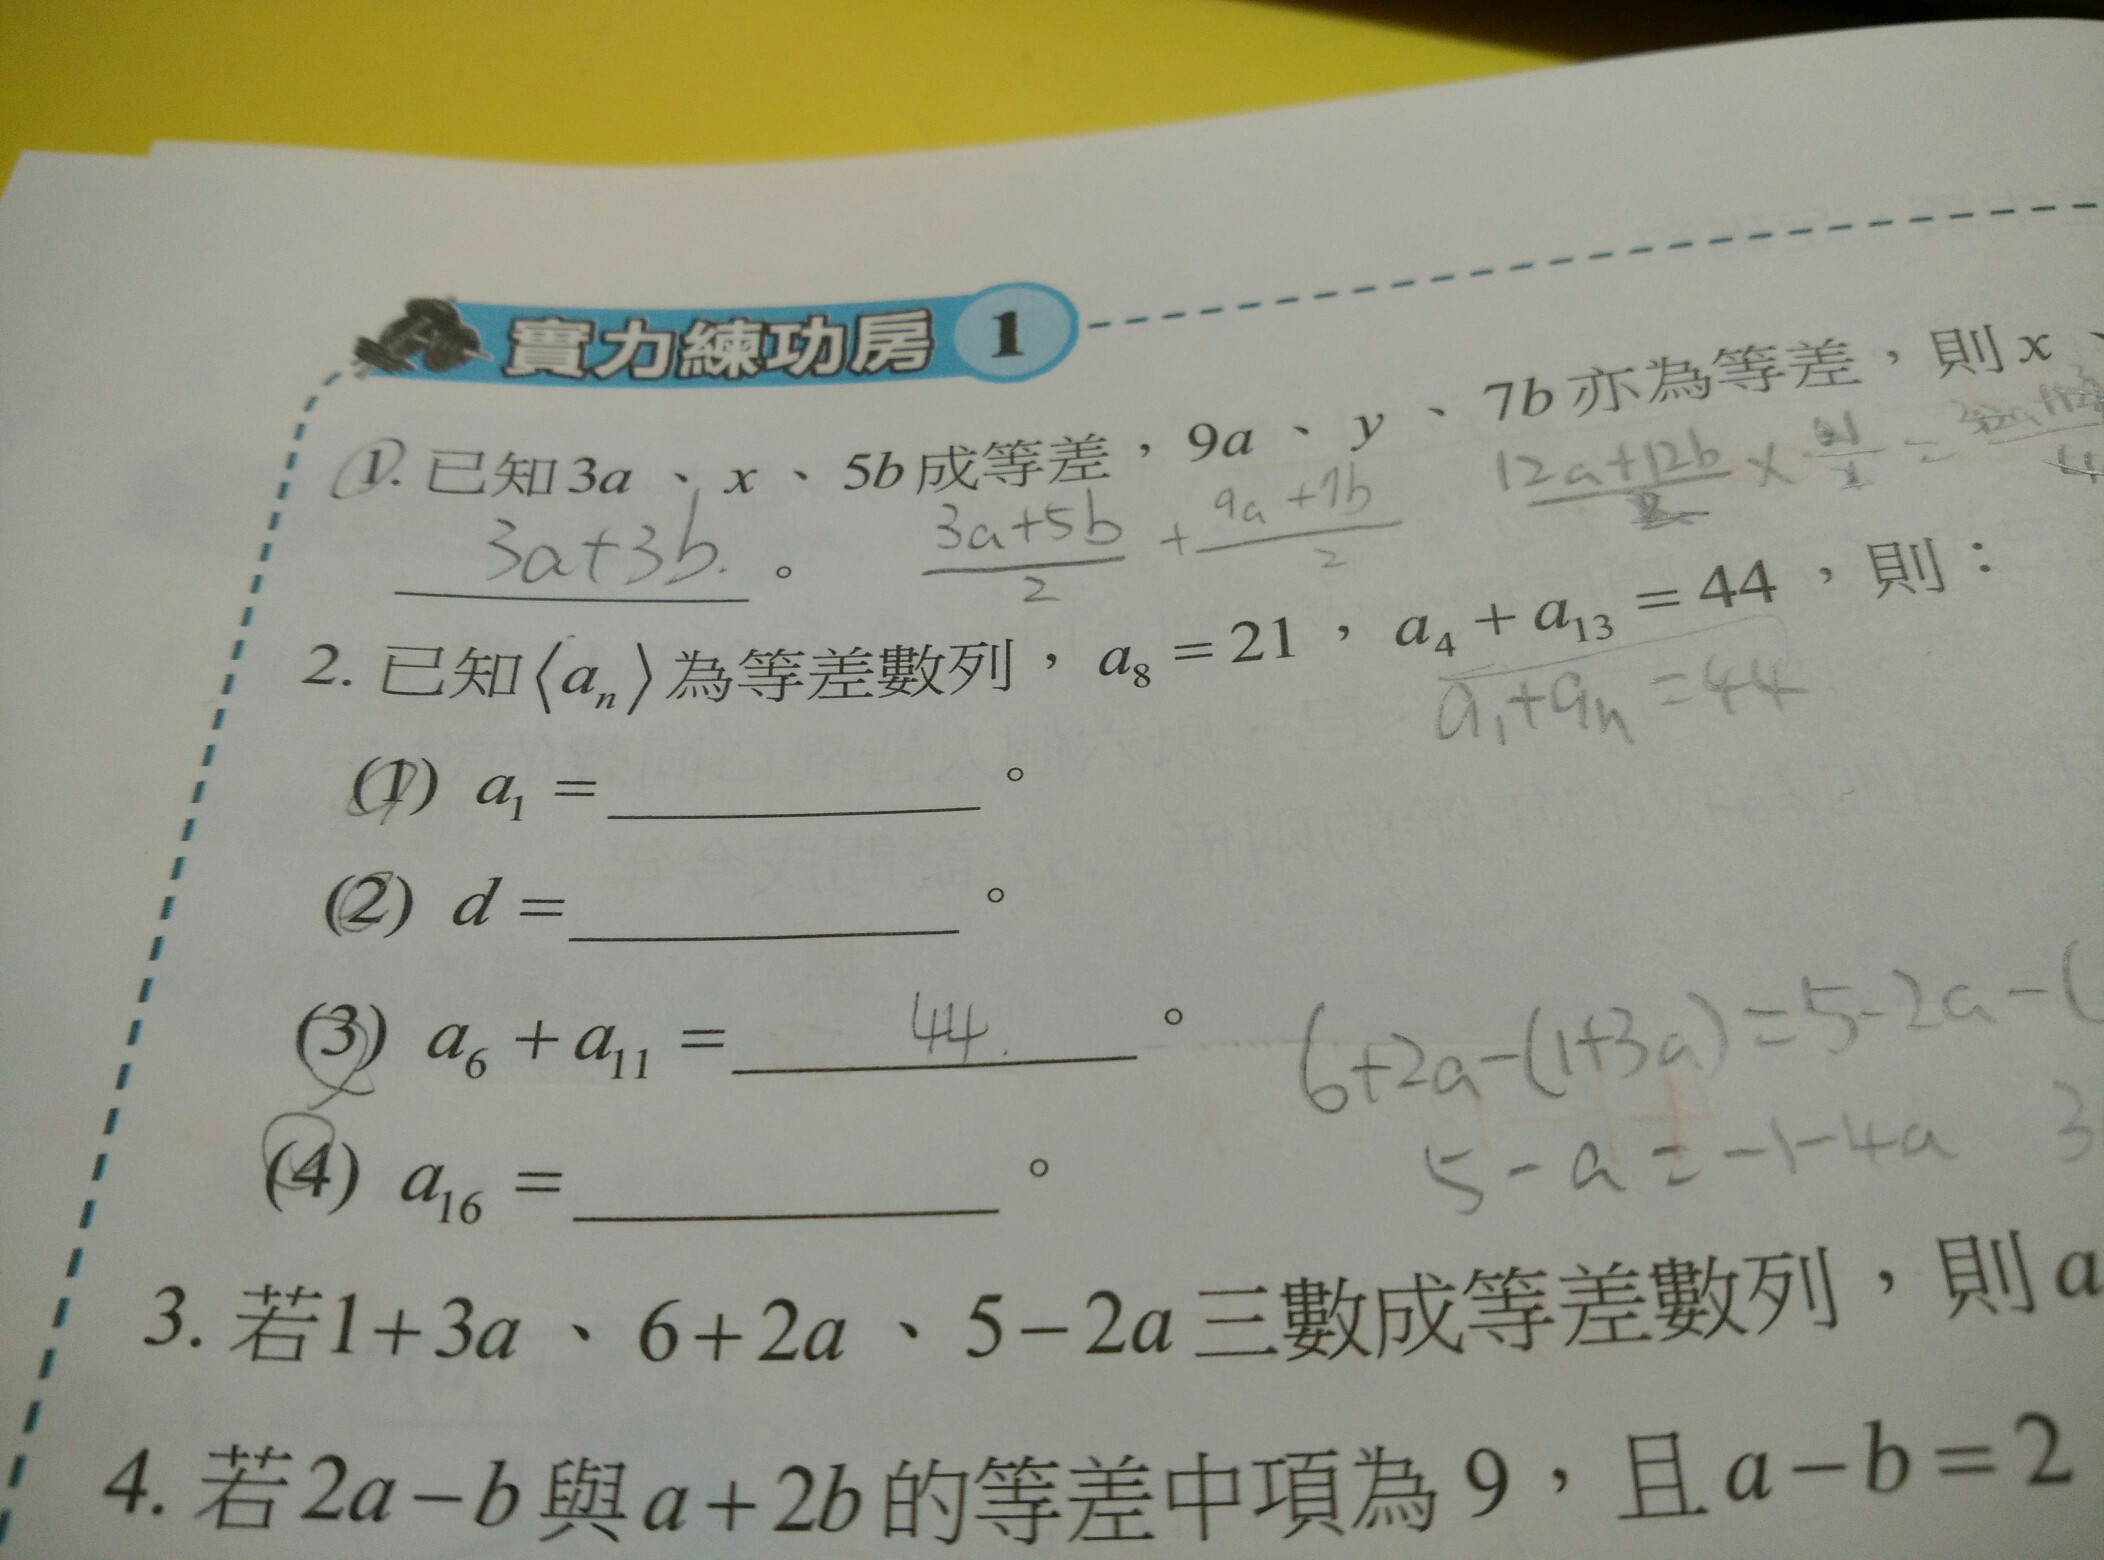 實力練功房 1
1. 已知3a、x、5b成等差，9a、y、7b亦為等差，則x、
3a+3b. 。 3a+5b/2 + 9a+7b/2 12a+12b
2. 已知⟨aₙ⟩為等差數列，a₈=21，a₄+a₁₃=44，則：
a₁+aₙ=44
(1) a₁=＿＿＿＿。
(2) d=＿＿＿＿。
(3) a₆+a₁₁= 44. 。
6+2a-(1+3a)=5-2a-(
5-a=-1-4a 3
(4) a₁₆=＿＿＿＿。
3. 若1+3a、6+2a、5-2a三數成等差數列，則a
4. 若2a-b與a+2b的等差中項為9，且a-b=2